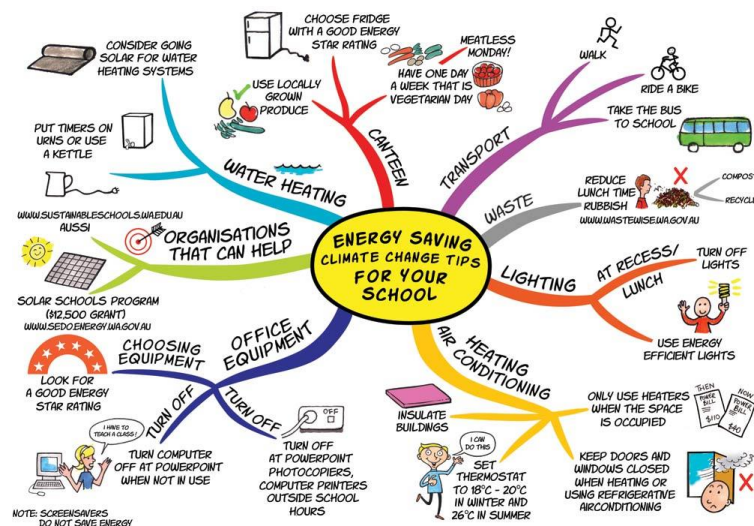 ENERGY SAVING
CLIMATE CHANGE TIPS
FOR YOUR
SCHOOL
CANTEEN
CHOOSE FRIDGE
WITH A GOOD ENERGY
STAR RATING
USE LOCALLY
GROWN
PRODUCE
MEATLESS
MONDAY!
HAVE ONE DAY
A WEEK THAT IS
VEGETARIAN DAY
TRANSPORT
WALK
RIDE A BIKE
TAKE THE BUS
TO SCHOOL
WASTE
REDUCE
LUNCH TIME
RUBBISH
WWW.WASTEWISE.WA.GOV.AU
COMPOS
RECYCLE
LIGHTING
AT RECESS/
LUNCH
TURN OFF
LIGHTS
USE ENERGY
EFFICIENT LIGHTS
HEATING
AIR CONDITIONING
INSULATE
BUILDINGS
I CAN
DO THIS
SET
THERMOSTAT
TO 18°C - 20°C
IN WINTER AND
26°C IN SUMMER
ONLY USE HEATERS
WHEN THE SPACE
IS OCCUPIED
THEN
POWER
BILL
$110
NOW
POWER
BILL
$40
KEEP DOORS AND
WINDOWS CLOSED
WHEN HEATING OR
USING REFRIGERATIVE
AIRCONDITIONING
OFFICE
EQUIPMENT
CHOOSING
EQUIPMENT
LOOK FOR
A GOOD ENERGY
STAR RATING
TURN OFF
I HAVE TO
TEACH A CLASS!
TURN COMPUTER
OFF AT POWERPOINT
WHEN NOT IN USE
NOTE: SCREENSAVERS
DO NOT SAVE ENERGY
TURN OFF
OFF
TURN OFF
AT POWERPOINT
PHOTOCOPIERS,
COMPUTER PRINTERS
OUTSIDE SCHOOL
HOURS
ORGANISATIONS
THAT CAN HELP
WWW.SUSTAINABLESCHOOLS.WA.EDU.AU
AUSSI
SOLAR SCHOOLS PROGRAM
($12,500 GRANT)
WWW.SEDO.ENERGY.WA.GOV.AU
WATER HEATING
CONSIDER GOING
SOLAR FOR WATER
HEATING SYSTEMS
PUT TIMERS ON
URNS OR USE
A KETTLE